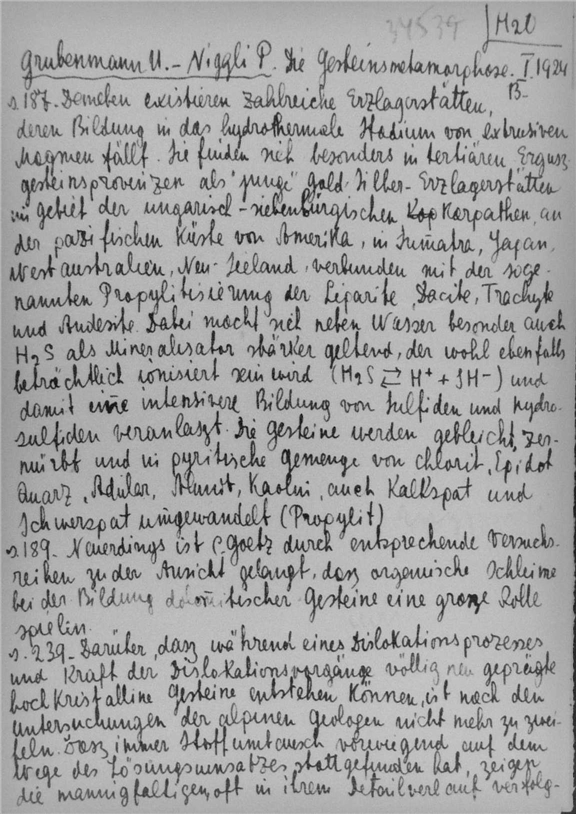 34539
H20
Grubenmann U. - Niggli P. Die Gesteinsmetamorphose. I. 1924
B-
s. 187. Daneben existieren zahlreiche Erzlagerstätten,
deren Bildung in das hydrothermale Stadium von extrusiven
Magmen fällt. Sie finden sich besonders in tertiären Ergusz-
gesteinsprovinzen als "junge" Gold-Silber-Erzlagerstätten
im gebiet der ungarisch-siebenbürgischen Kap Karpathen, an
der pazifischen Küste von Amerika, in Sumatra, Japan,
Westaustralien, Neu-Seeland, verbunden mit der soge-
nannten Propylitisierung der Liparite, Dacite, Trachyte
und Andesite. Dabei macht sich neben Wasser besonder auch
H2S als Mineralisator stärker geltend, der wohl ebenfalls
beträchtlich ionisiert sein wird (H2S ⇄ H+ + SH-) und
damit eine intensivere Bildung von Sulfiden und Hydro-
sulfiden veranlaszt. Die gesteine werden gebleicht, zer-
mürbt und in pyritische gemenge von Chlorit, Epidot
Quarz, Adular, Alunit, Kaolin, auch Kalkspat und
Schwerspat umgewandelt (Propylit)
s. 189. Neuerdings ist C. Goetz durch entsprechende Versuchs-
reihen zu der Ansicht gelangt, dasz organische Schleime
bei der Bildung dolomitischer Gesteine eine grosze Rolle
spielen.
s. 239. Darüber, dasz während eines Dislokationsprozesses
und Kraft der Dislokationsvorgänge völlig neu geprägte
hochkristalline gesteine entstehen können, ist nach den
Untersuchungen der alpinen geologen nicht mehr zu zwei-
feln. Dasz immer Stoffumtausch vorwiegend auf dem
Wege des Lösungsumsatzes stattgefunden hat, zeigen
die mannigfaltigen, oft in ihrem Detailverlauf verfolg-